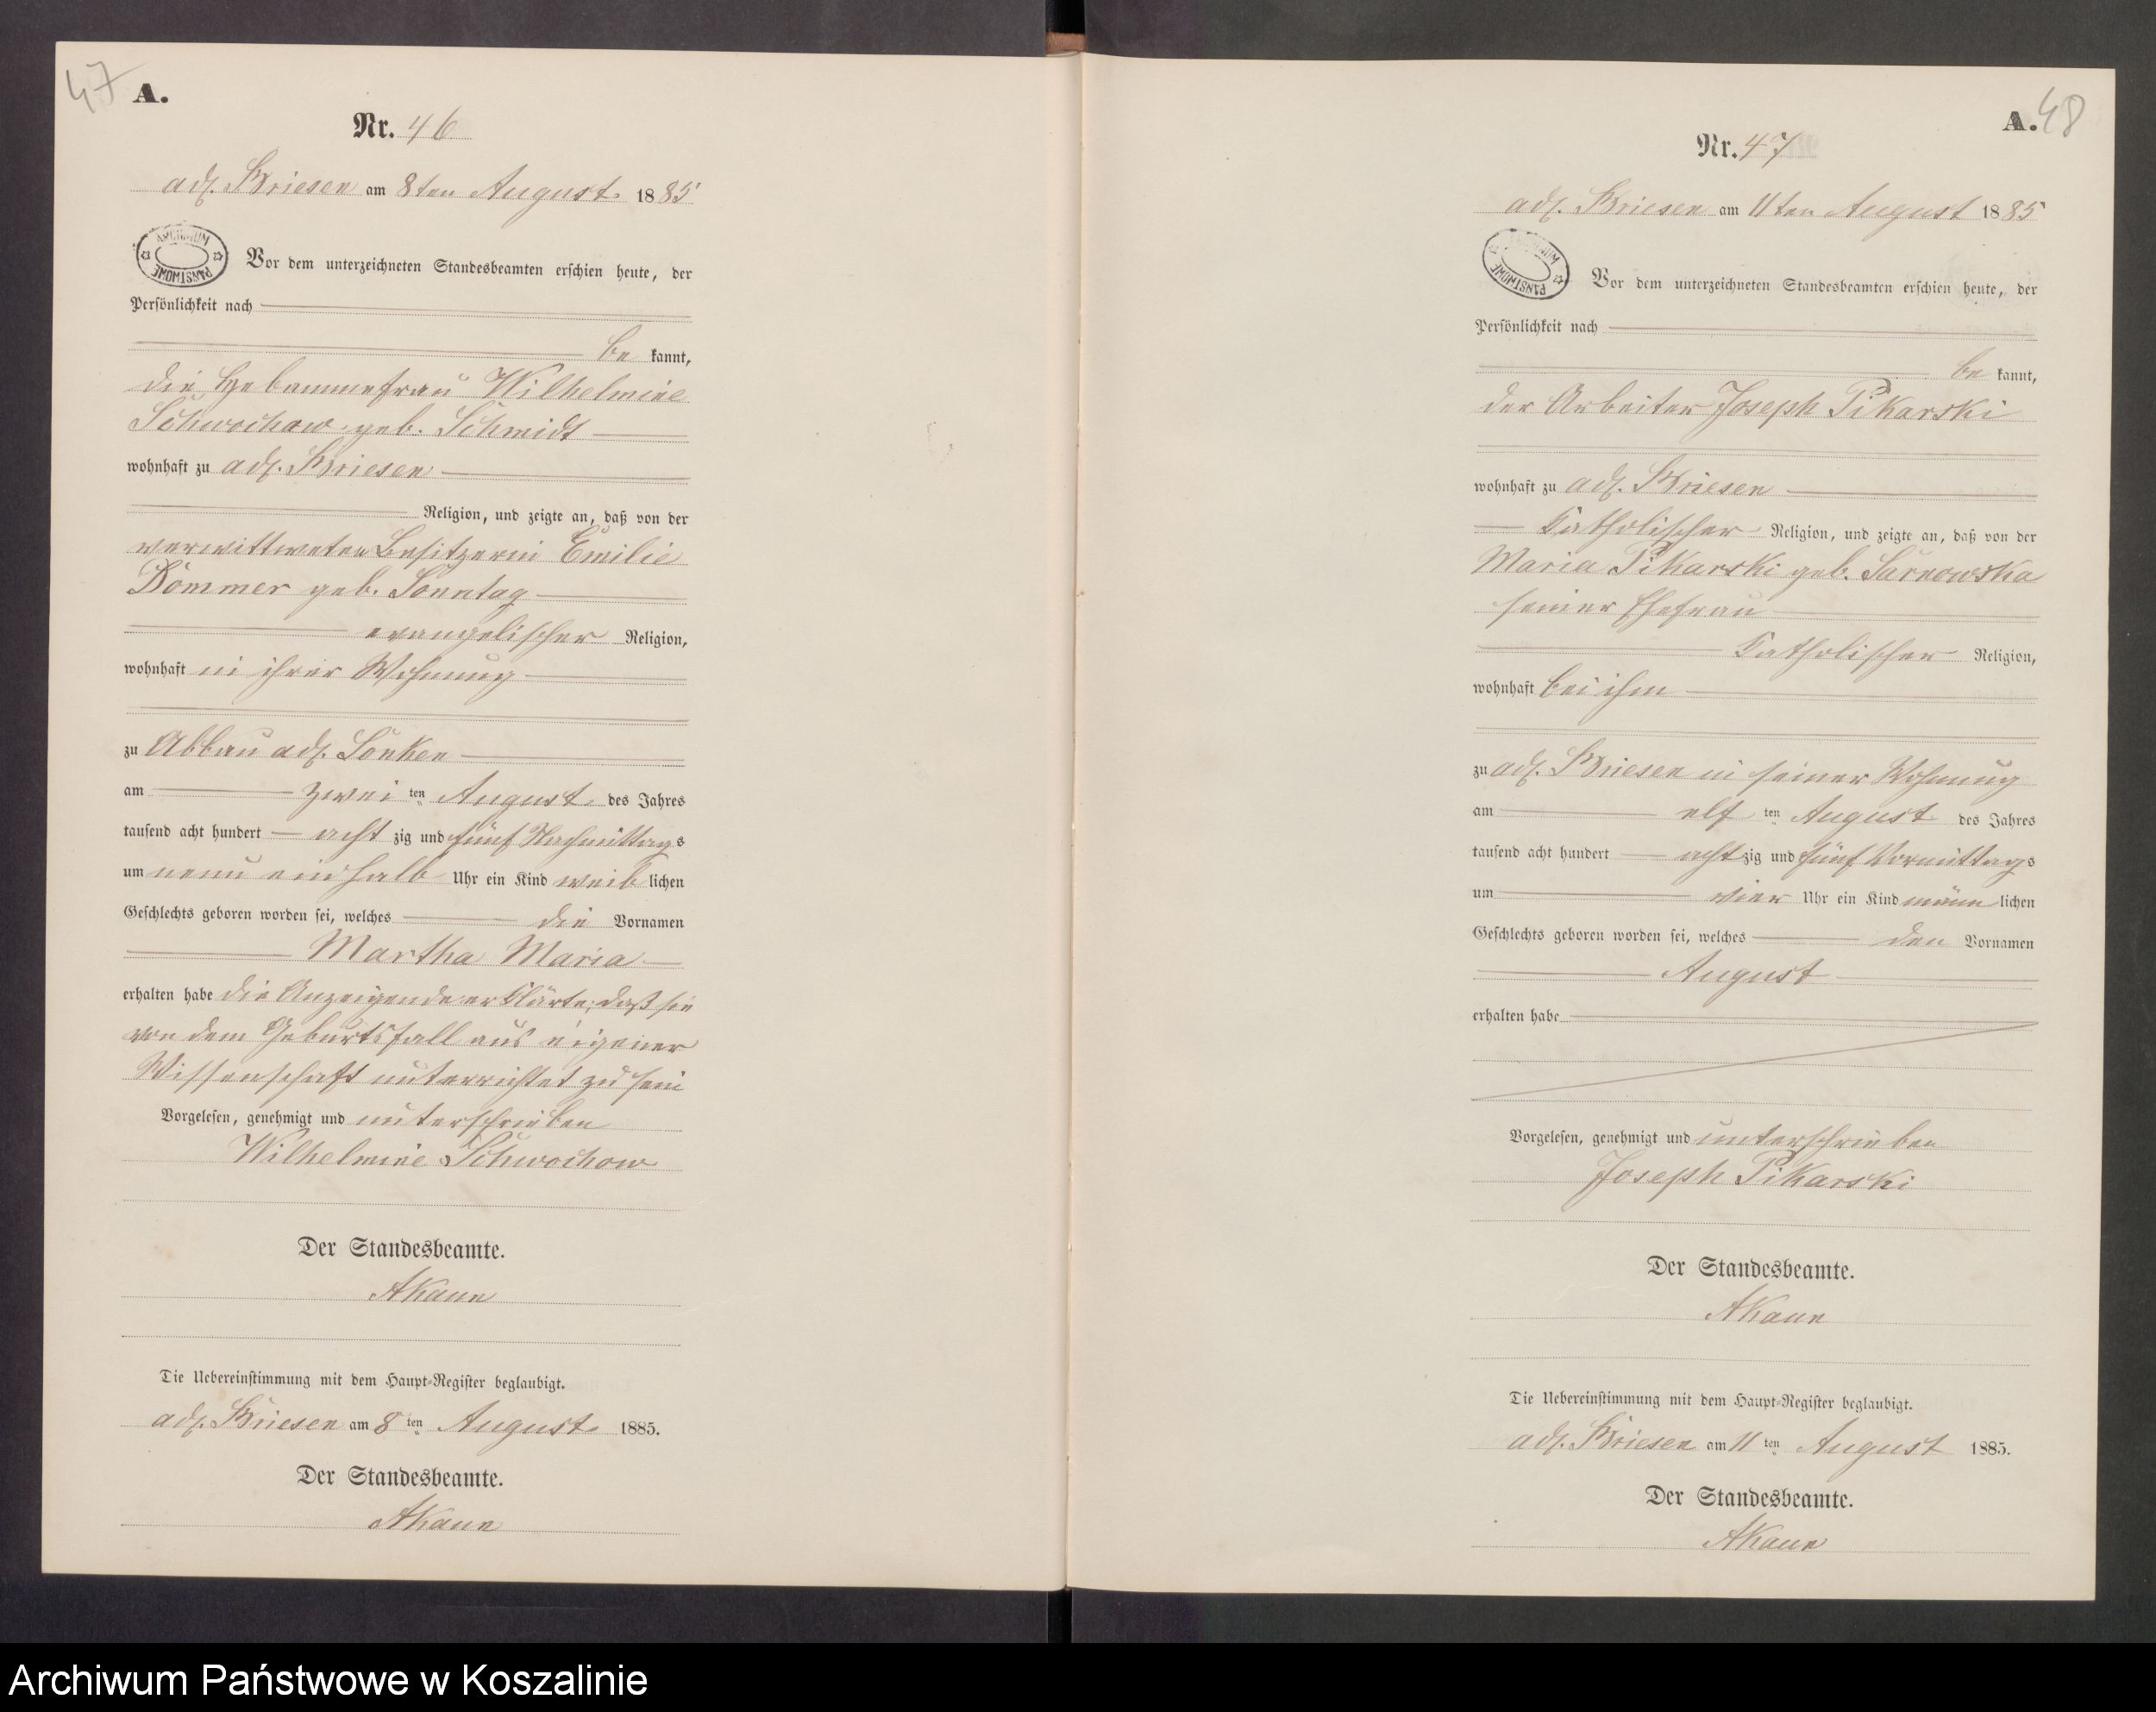 47
A.
Nr. 46
adl. Briesen am 8ten August 1885
ARCHIWUM PAŃSTWOWE
Vor dem unterzeichneten Standesbeamten erschien heute, der
Persönlichkeit nach
be kannt,
die Hebammefrau Wilhelmine
Schwochow geb. Schmidt
wohnhaft zu adl. Briesen
Religion, und zeigte an, daß von der
verwittweten Besitzerin Emilie
Dommer geb. Sonntag
evangelischer Religion,
wohnhaft in ihrer Wohnung
zu Abbau adl. Lonken
am zwei ten August des Jahres
tausend acht hundert acht zig und fünf Nachmittags
um neun einhalb Uhr ein Kind weib lichen
Geschlechts geboren worden sei, welches die Vornamen
Martha Maria
erhalten habe die Anzeigende erklärte, daß sie
von dem Geburtsfall aus eigener
Wissenschaft unterrichtet zu sein
Vorgelesen, genehmigt und unterschrieben
Wilhelmine Schwochow
Der Standesbeamte.
AKaun
Die Uebereinstimmung mit dem Haupt-Register beglaubigt.
adl. Briesen am 8 ten August 1885.
Der Standesbeamte.
AKaun
A. 48
Nr. 47
adl. Briesen am 11ten August 1885
ARCHIWUM PAŃSTWOWE
Vor dem unterzeichneten Standesbeamten erschien heute, der
Persönlichkeit nach
be kannt,
der Arbeiter Joseph Pikarski
wohnhaft zu adl. Briesen
Katholischer Religion, und zeigte an, daß von der
Maria Pikarski geb. Sarnowska
seiner Ehefrau
Katholischer Religion,
wohnhaft bei ihm
zu adl. Briesen in seiner Wohnung
am elf ten August des Jahres
tausend acht hundert acht zig und fünf Vormittags
um vier Uhr ein Kind männ lichen
Geschlechts geboren worden sei, welches den Vornamen
August
erhalten habe
Vorgelesen, genehmigt und unterschrieben
Joseph Pikarski
Der Standesbeamte.
AKaun
Die Uebereinstimmung mit dem Haupt-Register beglaubigt.
adl. Briesen am 11 ten August 1885.
Der Standesbeamte.
AKaun
Archiwum Państwowe w Koszalinie